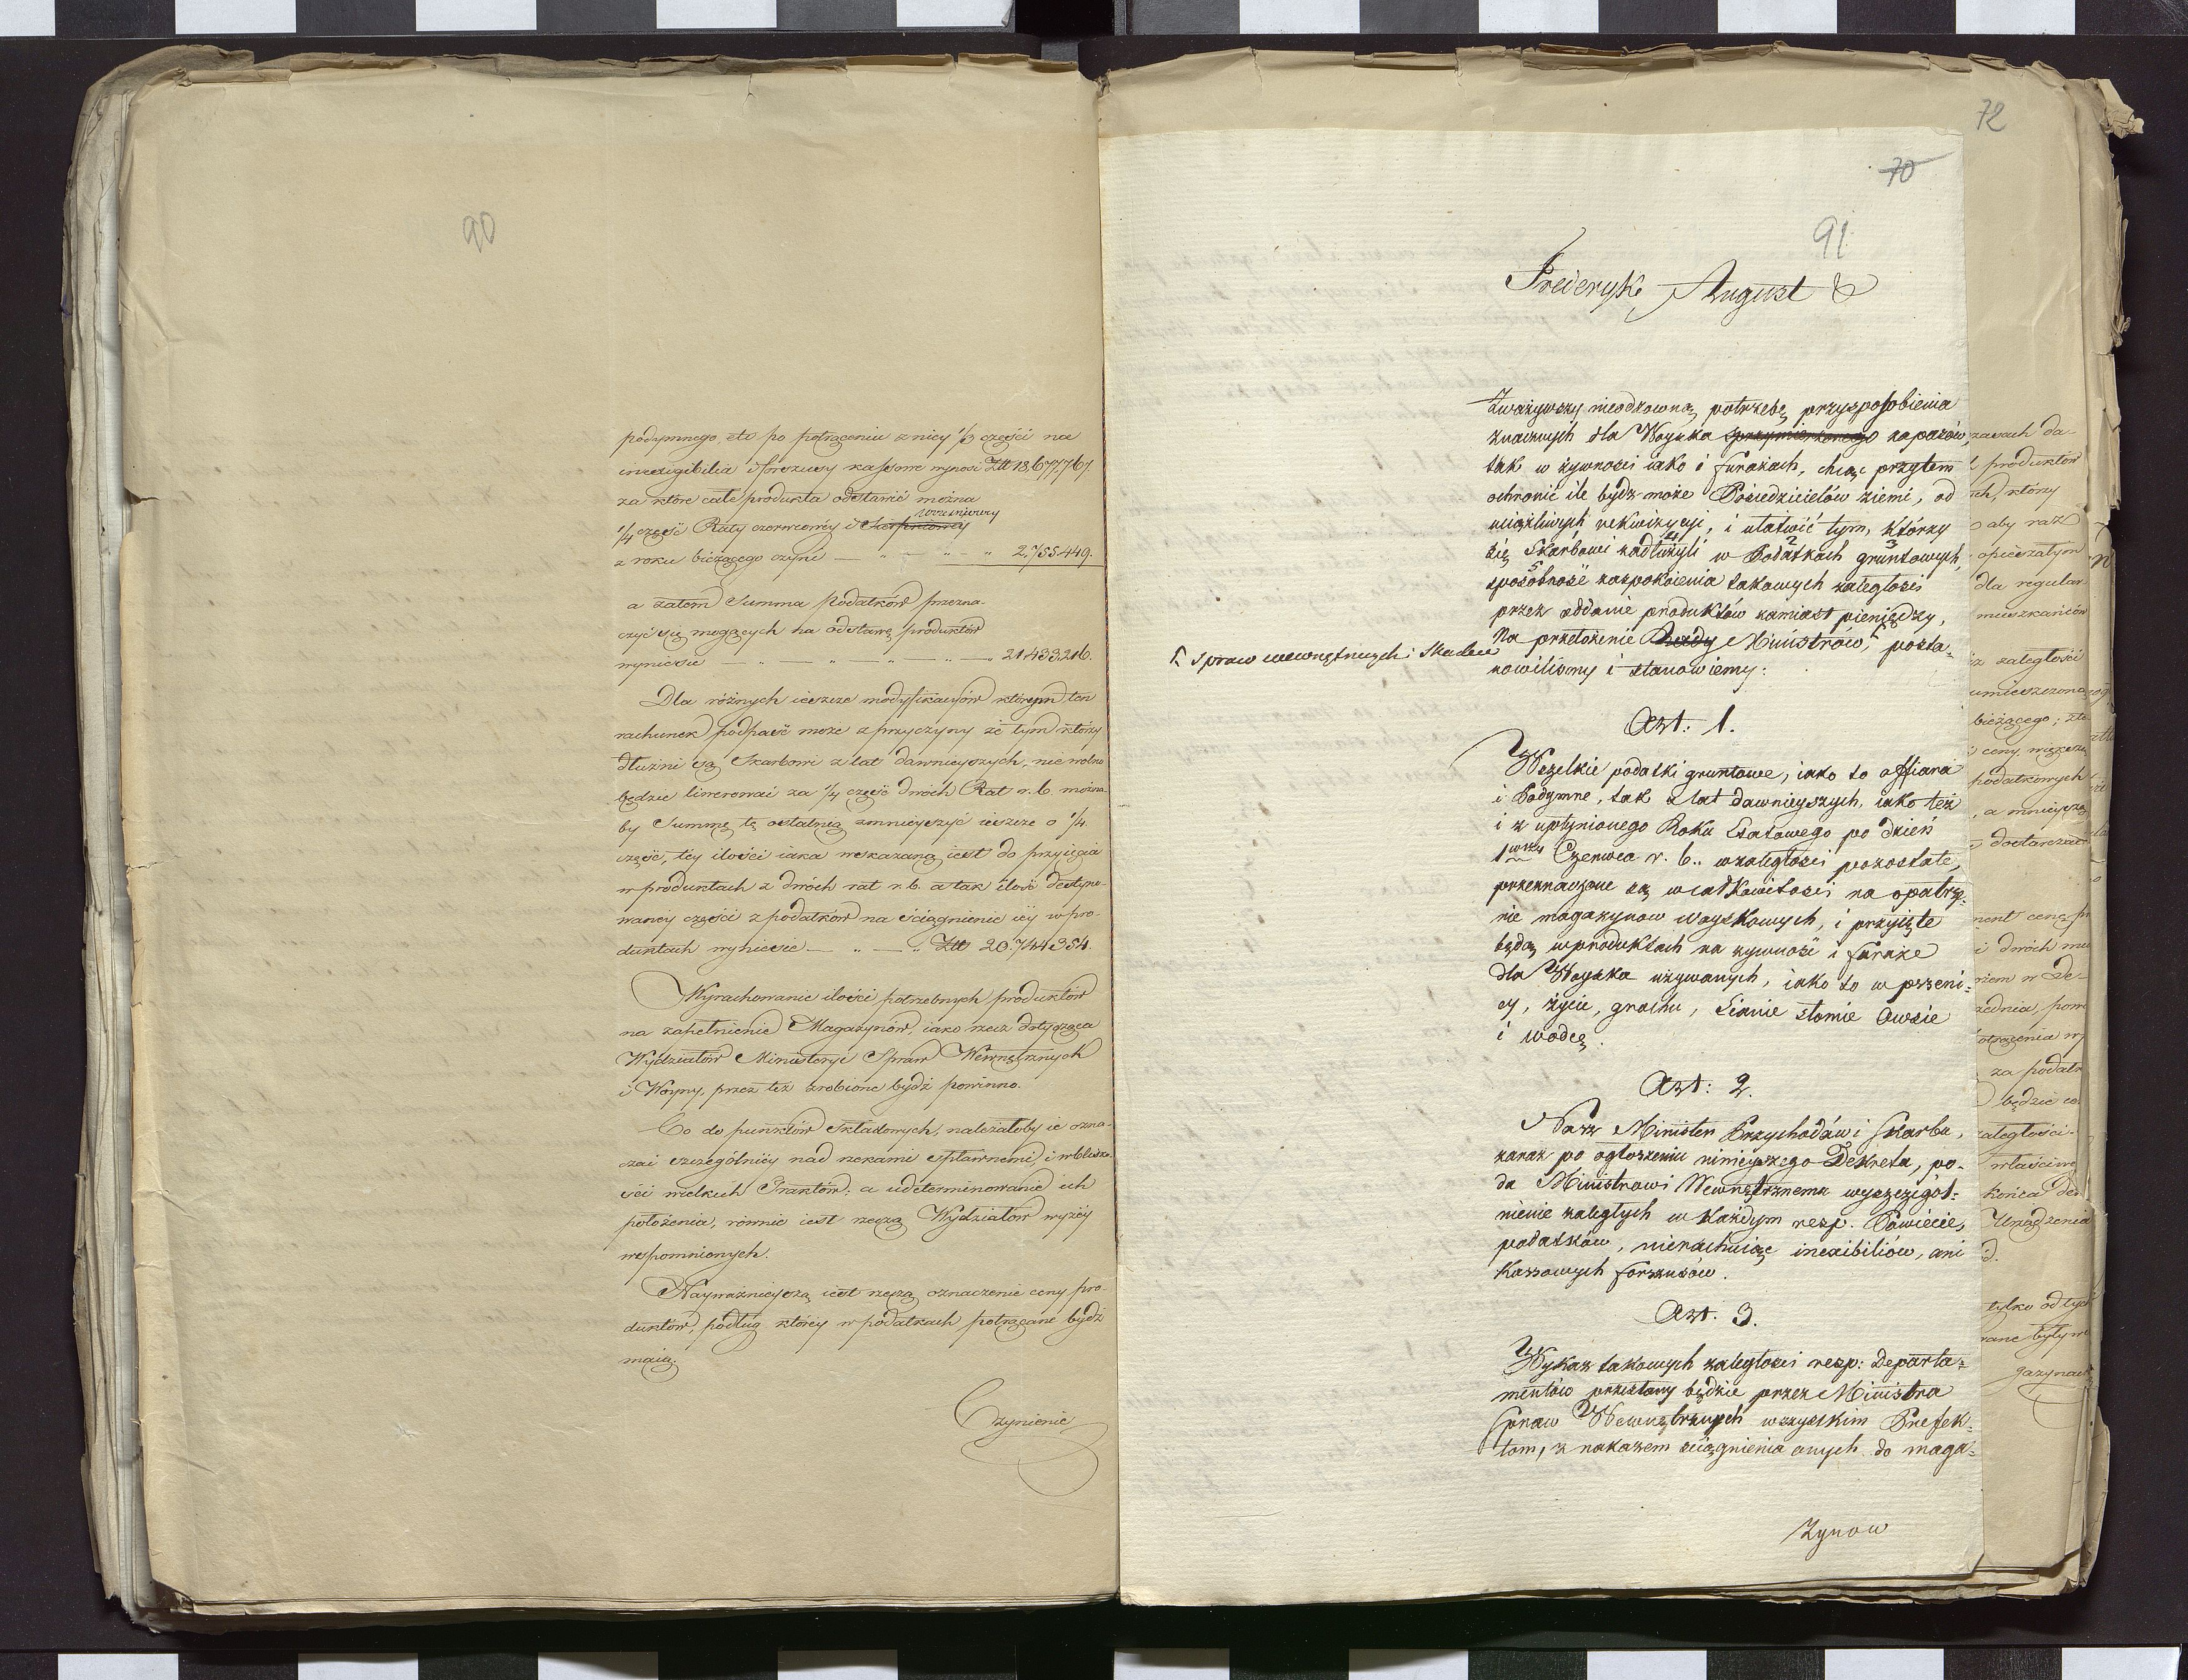 90
podymnego, etc po potrąceniu z niey 1/3 części na
inexigibilia i forszusy kassowe wynosi Ztt 18,677,767.
za które całe produkta odstawić można
1/4 część Raty czerwcowey i Sierpniowey wrześniowey
z roku bieżącego czyni — „ — „ — „ 2,755,449.
a zatem Summa Podatków przezna-
czyć się mogących na odstawę produktów
wyniesie — „ — „ — „ — „ — 21,433,216.
Dla różnych ieszcze modyfikacyiów którym ten
rachunek podpaść może z przyczyny że tym którzy
dłużni są Skarbowi z lat dawnieyszych, nie wolno
będzie liwerować za 1/4 część dwóch Rat r. b. można-
by Summę tę ostatnią zmnieyszyć ieszcze o 1/4.
część, tey ilości iaka wskazaną iest do przyięcia
w produktach z dwóch rat r. b. a tak ilość destyno-
waney części z podatków na ściągnienie iey w pro-
duktach wyniesie — „ — „ Ztt 20,744,354.
Wyrachowanie ilości potrzebnych produktów
na zapełnienie Magazynów, iako rzecz dotycząca
Wydziałów Ministeryi Spraw Wewnętrznych
i Woyny, przez też zrobione bydź powinno.
Co do punktów składowych, należałoby ie ozna-
czać szczególniey nad rzekami spławnemi, i w blisko-
ści wielkich Traktów: a udeterminowanie ich
położenia, równie iest rzeczą Wydziałów wyżey
wspomnionych.
Nayważnieyszą iest rzeczą oznaczenie ceny pro-
duktów, podług którey w podatkach potrącane bydź
maią.
Czynienie
72
70
91
Fryderyk August &
Zważywszy nieodzowną potrzebę przysposobienia
znacznych dla Woyska sprzymierzonego zapasów,
tak w żywności iako i furażach, chcąc przytem
ochronić ile bydź może Posiedzicielów ziemi, od
uciążliwych rekwizycyi, i ułatwić tym, którzy
się Skarbowi zadłużyli w Podatkach gruntowych,
4 2 3
sposobność zaspokoienia takowych zaległości
5
przez oddanie produktów zamiast pieniędzy,
Na przełożenie Rady Ministrów, posta-
spraw wewnętrznych i Skarbu
nowiliśmy i stanowiemy:
Art: 1.
Wszelkie podatki gruntowe, iako to offiara
i Podymne, tak z lat dawnieyszych, iako też
i z upłynionego Roku Etatowego po dzień
1wszy Czerwca r. b.. w zaległości pozostałe,
przeznaczone są w całkowitości na opatrze-
nie magazynow woyskowych, i przyięte
będą w produktach na żywność i furaże
dla Woyska używanych, iako to w pszeni-
cy, życie, grochu, Sianie słomie Owsie
i wodce.
Art: 2.
Nasz Minister Przychodów i Skarbu,
zaraz po ogłoszeniu ninieyszego Dekretu, po-
da Ministrowi Wewnętrznemu wyszczegól-
nienie zaległych w każdym resp. Powiecie,
podatków, nierachuiąc inexibiliów, ani
Kassowych forszusów.
Art. 3.
Wykaz takowych zaległości resp: Departa-
mentów przesłany będzie przez Ministra
Spraw Wewnętrznych wszyskim Prefek-
tom, z nakazem ściągnienia onych do maga-
zynow
produktów
który
aby raz
dla regular
mieszkańców
zaległości
umieszczoną
bieżącego;
ceny większą
podatkowych
a mnieyszą
cenę
i dwóch
za podatk
będzie
zaległości
właściwe
końca
Urządzenia
tylko od tych
gazynach